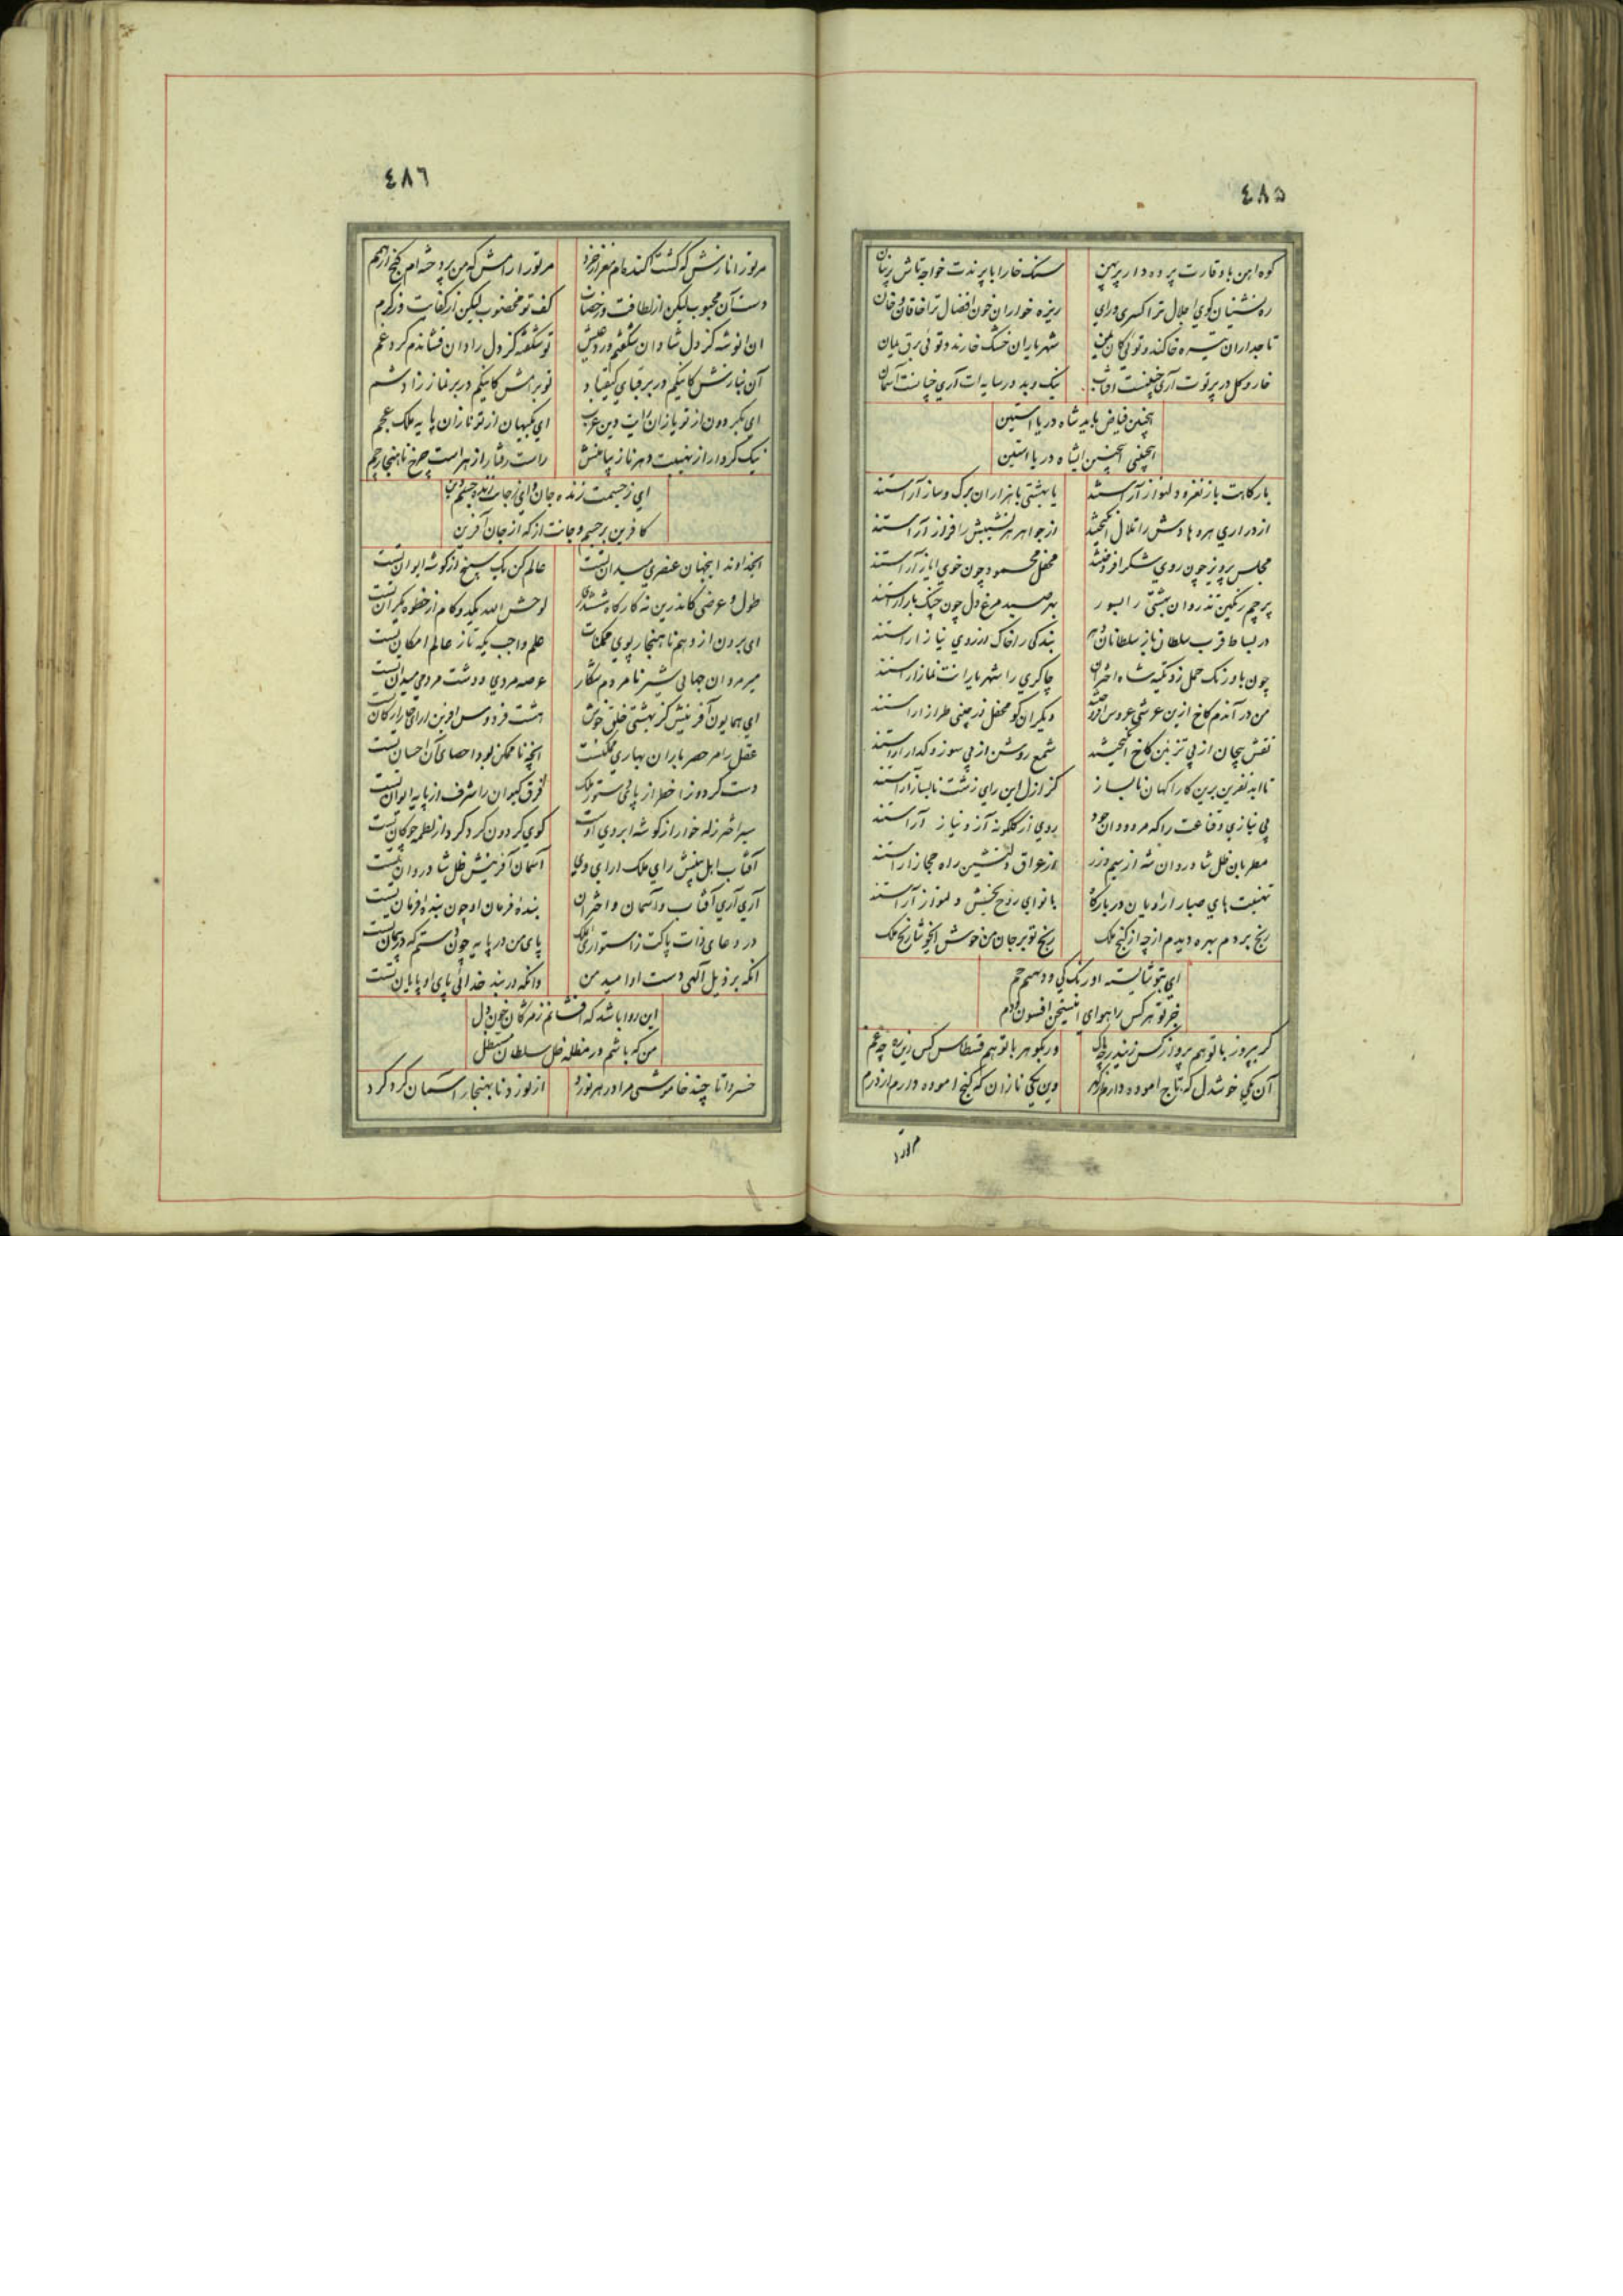 ٤٨٥
کوه آهن با وقارت پرده دار پرهن سنگ خارا با پرندت خواجه تاش پرنیان
ره نشینان کوی اجلال ترا کسری و رای ریزه خواران خون افضال ترا خاقان و خان
تاجداران تیره خاکند و توئی کان شهریاران خشک خارند و توئی برق یمان
خار و گل در پرتوت آری چنینست آفتاب نیک و بد در سایه ات آری چنانست آسمان
اینچنین فیاض باید شاه دریا آستین
اینچنین شاه دریا آستین
بارگاهت باز نغز و دلنواز آراستند یا بهشتی با هزاران برگ و ساز آراستند
از دراری هر وهادش را تلال انگیختند از جواهر هر نشیبش را فراز آراستند
مجلس پرویز چون روی شکر افروختند محفل محمود چون خوی ایاز آراستند
پرچم رنگین تذروان بهشتی را بسور بهر صید مرغ دل چون چنگ باز آراستند
در بساط قرب سلطان ناز سلطانان بندگی را خاک از روی نیاز آراستند
چون باورنگ حمل زد تکیه شاه اختران چاکری را شهریارانت نماز آراستند
من در آندم کاخ ازین عرشی عروس افروختند دیگران گو محفل از چینی طراز آراستند
نقش بیجان از پی تزئین کاخ انگیختند شمع روشن از پی سوز و گداز آراستند
تا ابد نفرین برین کارآگهان ناساز کز ازل این رای زشت ناساز آراستند
بی نیازی و قناعت را که مرد و دان جود روی از گلگونه آز و نیاز آراستند
مطربان ظل شادروان شه از سیم و زر از عراق دلنشین راه حجاز آراستند
تهنیت های صبا را راویان در بارگاه با نوای روح بخش و دلنواز آراستند
رنج بردم بهره دیدم از چه از گنج ملک رنج تو بر جان من خوش ای خوشا رنج ملک
ای بتو شایسته اورنگ کی و دیهیم جم
جز تو هر کس را هوای این سخن افسون و دم
گر بپرویز با تو هم پرواز کس زیندر چه باک ور بگوهر با تو هم قسطاس کس زین ره چه غم
آن یکی خوشدل که تاج آموده دارم از گهر وین یکی نازان که گنج آموده دارم از درم
مر تورا
٤٨٦
مر تورا نازش که گشت آکنده ام مغز از خرد مر تورا رامش که من پرداخته ام گنج از درهم
دست آن محبوب لیکن از لطافت وز خضاب کف تو مخضوب لیکن از کفایت وز کرم
آن انوشه کز دل شادان شکفتم ورد عیش تو شکفته کز دل رادان فشاندم گرد غم
آن بنازش کاینکم در بر قبای کیقباد تو برامش کاینکم در بر نماز زادشم
ای بگردون از تو یازان رایت دین عرب ای بکیهان از تو نازان پایه ملک عجم
نیک کردار از نهیبت دهر ناز پیا منش راست رفتار از هراست چرخ ناهنجار چم
ای ز جسمت زنده جان و ای ز جانت زنده جسم
کافرین بر جسم و جانت از که از جان آفرین
ایخداوند اینجهان عنصری میدان تست عالم کن یک سپنج از گوشه ایوان تست
طول و عرضی کاندرین نه کارگاه ششدری لوحش الله یکدو گام از خطوه یکران تست
ای برون از وهم ناهنجار پوی ممکنات علم واجب یکه تاز عالم امکان تست
میر مردان جهانی شیر نامردم شکار عرصه مردی و دشت مردمی میدان تست
ای همایون آفرینش کز بهشتی خلق خوش هشت فردوس آفرین آرای چار ارکان تست
عقل را مر حصر باران بهاری ممکنست آنچه ناممکن بود احصای آن احسان تست
دست گردونرا خطر از پای دستور ملک فرق کیوان را شرف از پایه ایوان تست
سیر اختر زله خوار از گوشه ابروی اوست گوی گردون گرد گرد از لطمه چوگان تست
آفتاب اهل بینش رای ملک آرای وی آسمان آفرینش ظل شادروان تست
آری آری آفتاب و آسمان و اختران بنده فرمان او چون بنده فرمان تست
در دعای ذات پاکت ز استواری فلک پای من در پایه چون دستم که در پیمان تست
آنکه بر ذیل الهی دست او امید من وانکه در بند خدائی پای او پایان تست
این روا باشد که افشانم ز مژگان خون دل
من که باشم در مظله ظل سلطان مستظل
خسروا تا چند خاموشی مرا در هر نورد از نورد نابهنجار آسمان گرد گرد